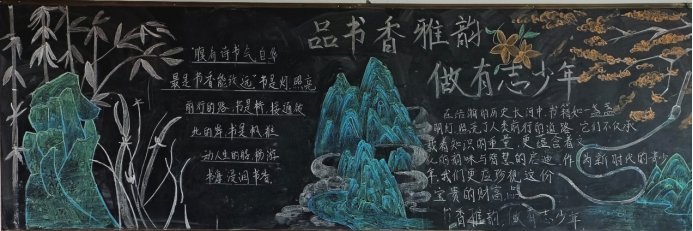 品书香雅韵
做有志少年
"腹有诗书气自华
最是书香能致远"书是灯,照亮
前行的路,书是桥,接通彼
此的岸,书是帆,推
动人生的船,畅游
书海,浸润书香。
在浩瀚的历史长河中,书籍如一盏盏
明灯,照亮了人类前行的道路,它们不仅承
载着知识的重量,更蕴含着文
人的韵味与
作为新时代的青少
年,我们更应珍视这份
宝贵的财富,品
书香雅韵,做有志少年